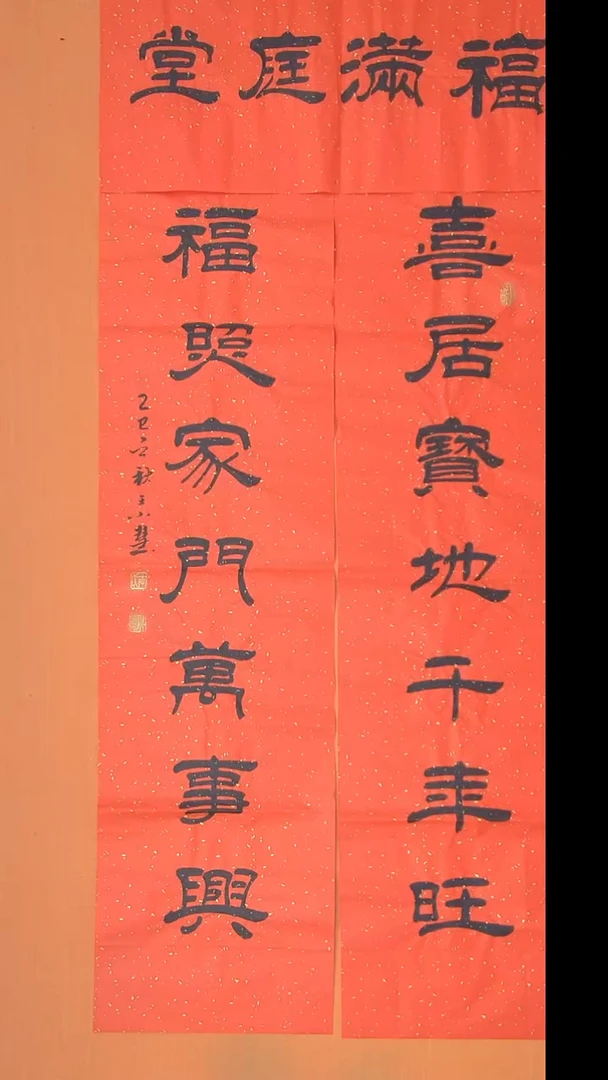 福滿庭堂
喜居寶地千年旺
福照家門萬事興
乙巳之秋王小慧